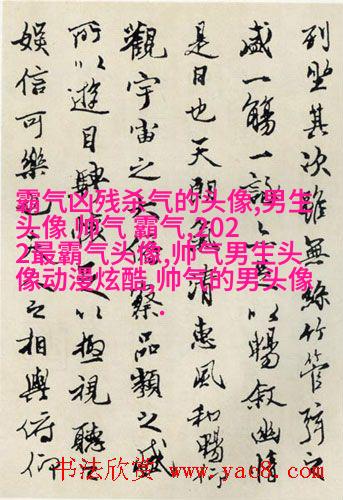 列坐其次雖無絲竹管弦之
盛一觴一詠亦足以暢敘幽情
是日也天朗氣清惠風和暢仰
觀宇宙之大俯察品類之盛
所以遊目騁懷足以極視聽之
娛信可樂也夫人之相與俯仰
霸气凶残杀气的头像,男生
头像 帅气 霸气,202
2最霸气头像,帅气男生头
像动漫炫酷,帅气的男头像
.
书法欣赏 www.yac8.com